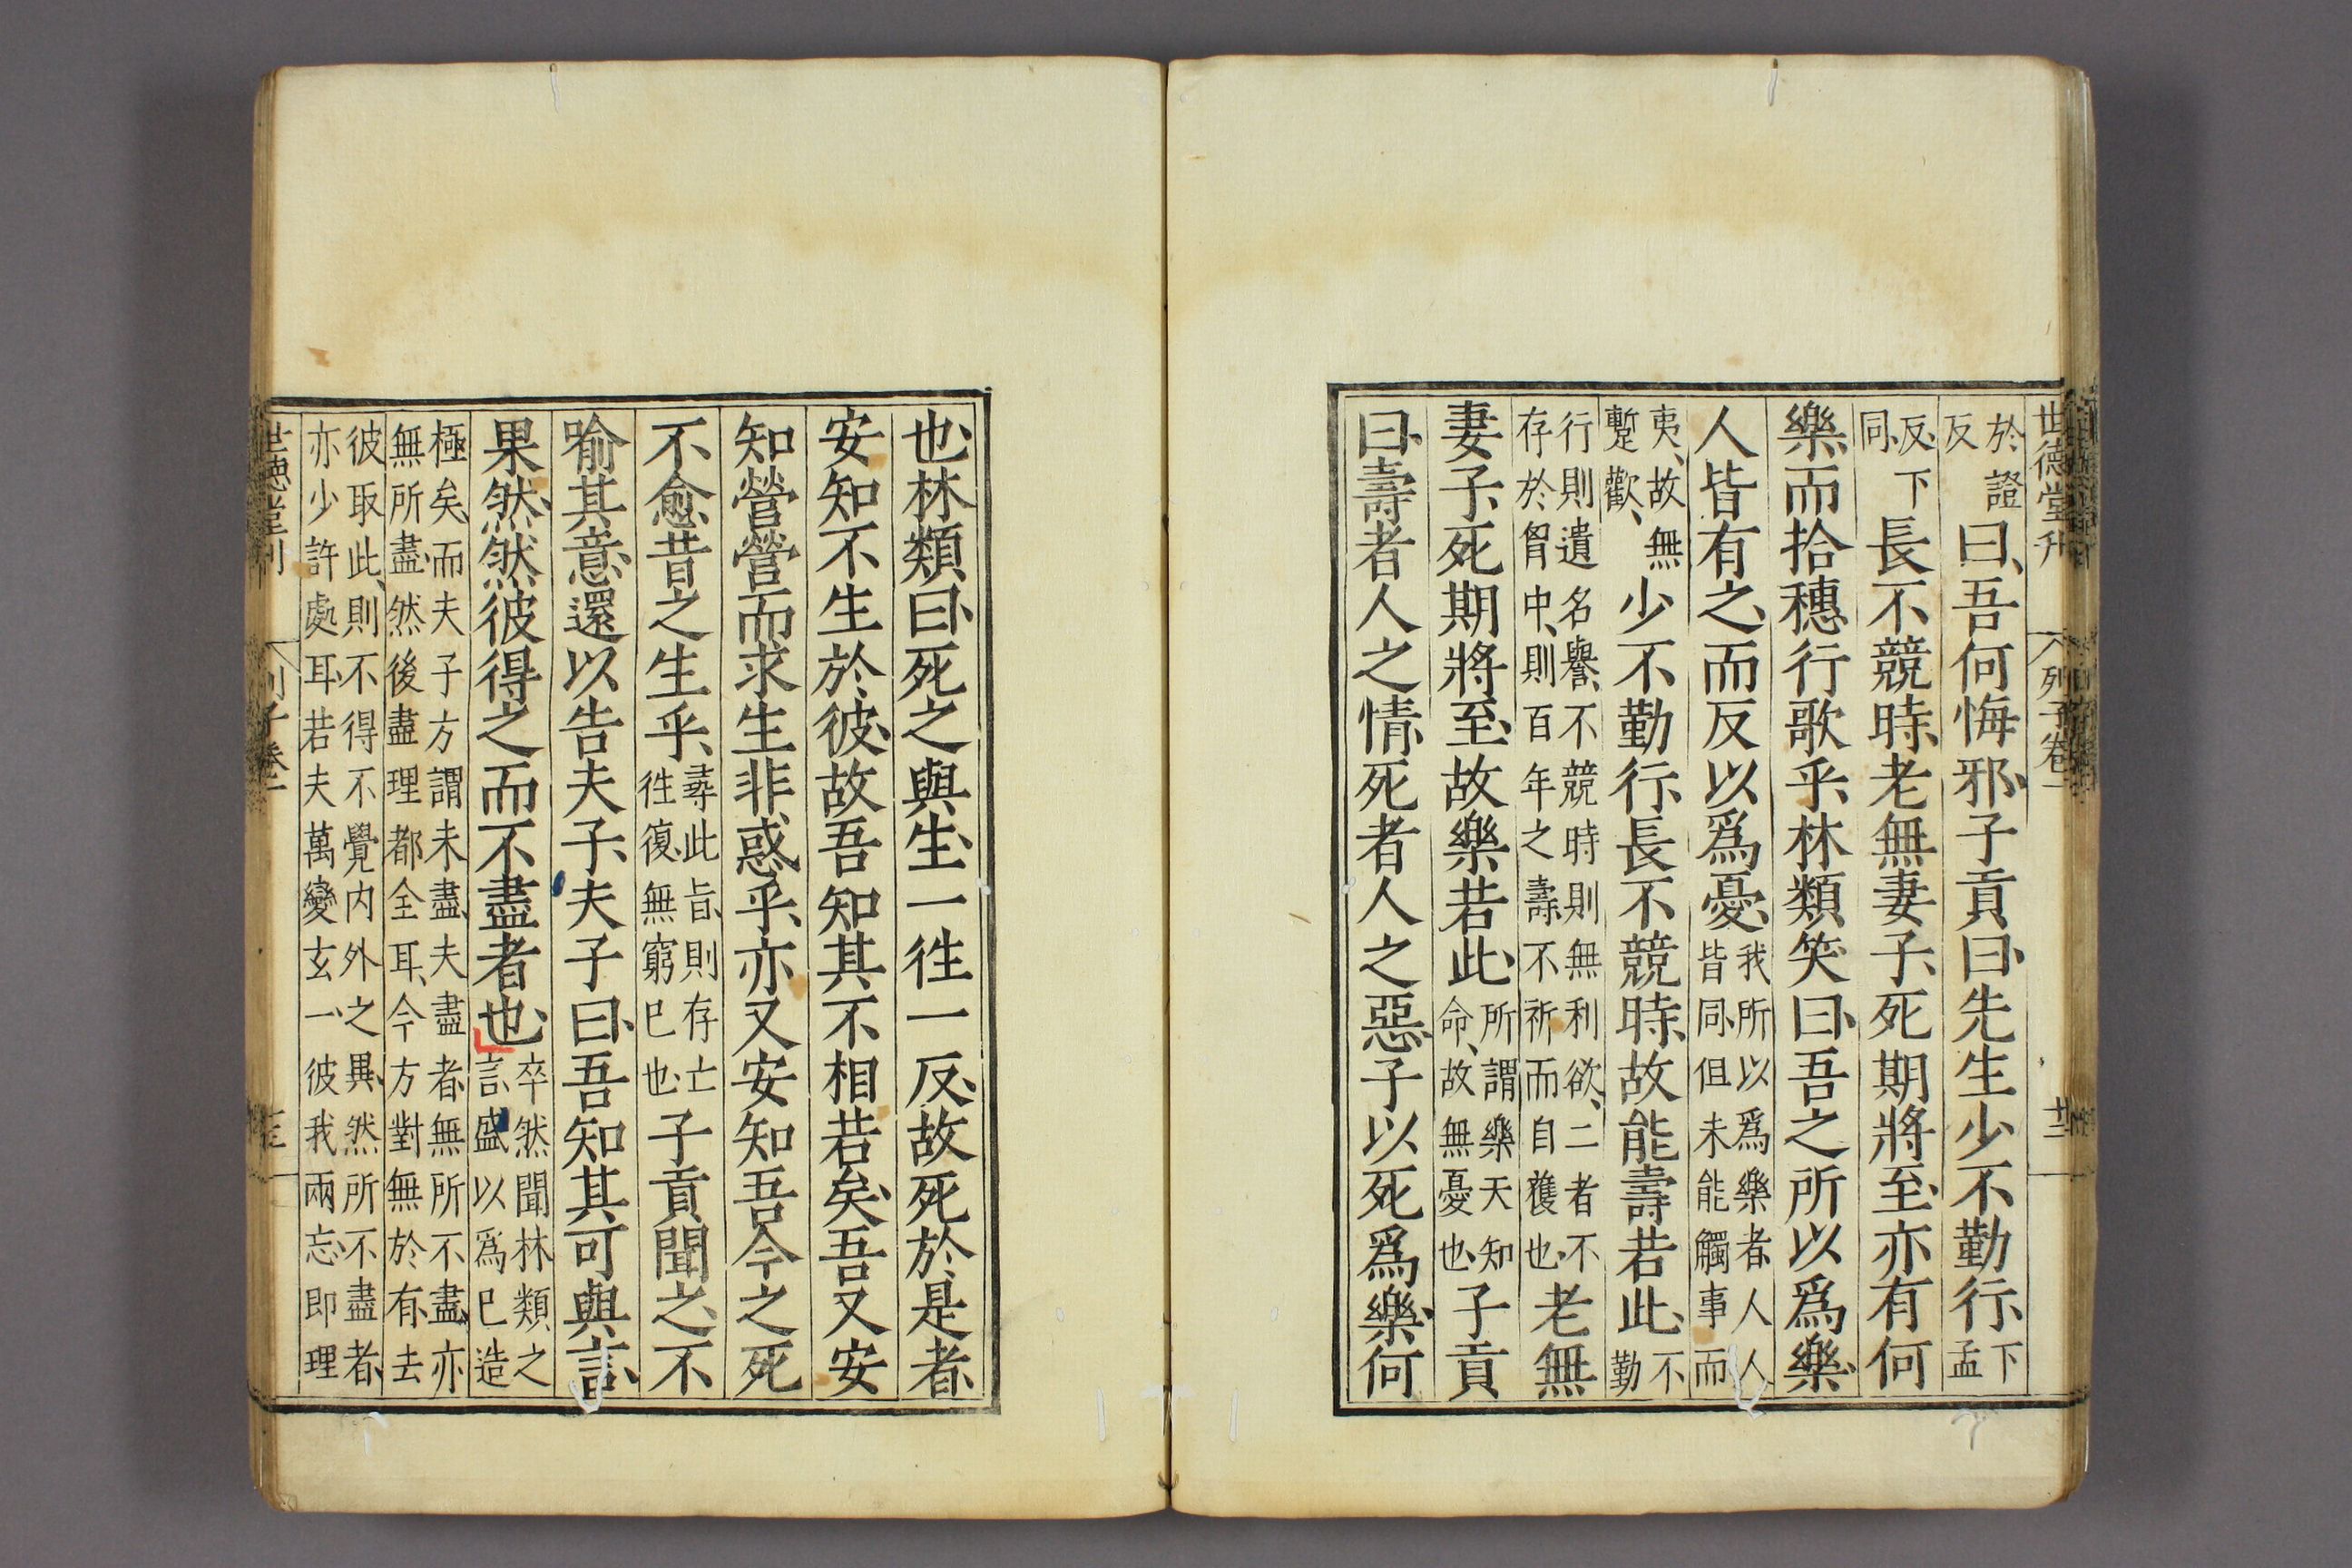 世德堂刋 列子卷一 廿二
於證反曰吾何悔邪子貢曰先生少不勤行下孟
反下同長不競時老無妻子死期將至亦有何
樂而拾穗行歌乎林類笑曰吾之所以爲樂
人皆有之而反以爲憂我所以爲樂者人人皆同但未能觸事而
夷故無蹔歡少不勤行長不競時故能壽若此不勤
行則遺名譽不競時則無利欲二者不存於胷中則百年之壽不祈而自獲也老無
妻子死期將至故樂若此所謂樂天知命故無憂也子貢
曰壽者人之情死者人之惡子以死爲樂何
也林類曰死之與生一徃一反故死於是者
安知不生於彼故吾知其不相若矣吾又安
知營營而求生非惑乎亦又安知吾今之死
不愈昔之生乎尋此旨則存亡徃復無窮已也子貢聞之不
喻其意還以告夫子夫子曰吾知其可與言
果然然彼得之而不盡者也卒然聞林類之言盛以爲已造
極矣而夫子方謂未盡夫盡者無所不盡亦無所盡然後盡理都全耳今方對無於有去
彼取此則不得不覺內外之異然所不盡者亦少許處耳若夫萬變玄一彼我兩忘即理
世德堂刊 列子卷一